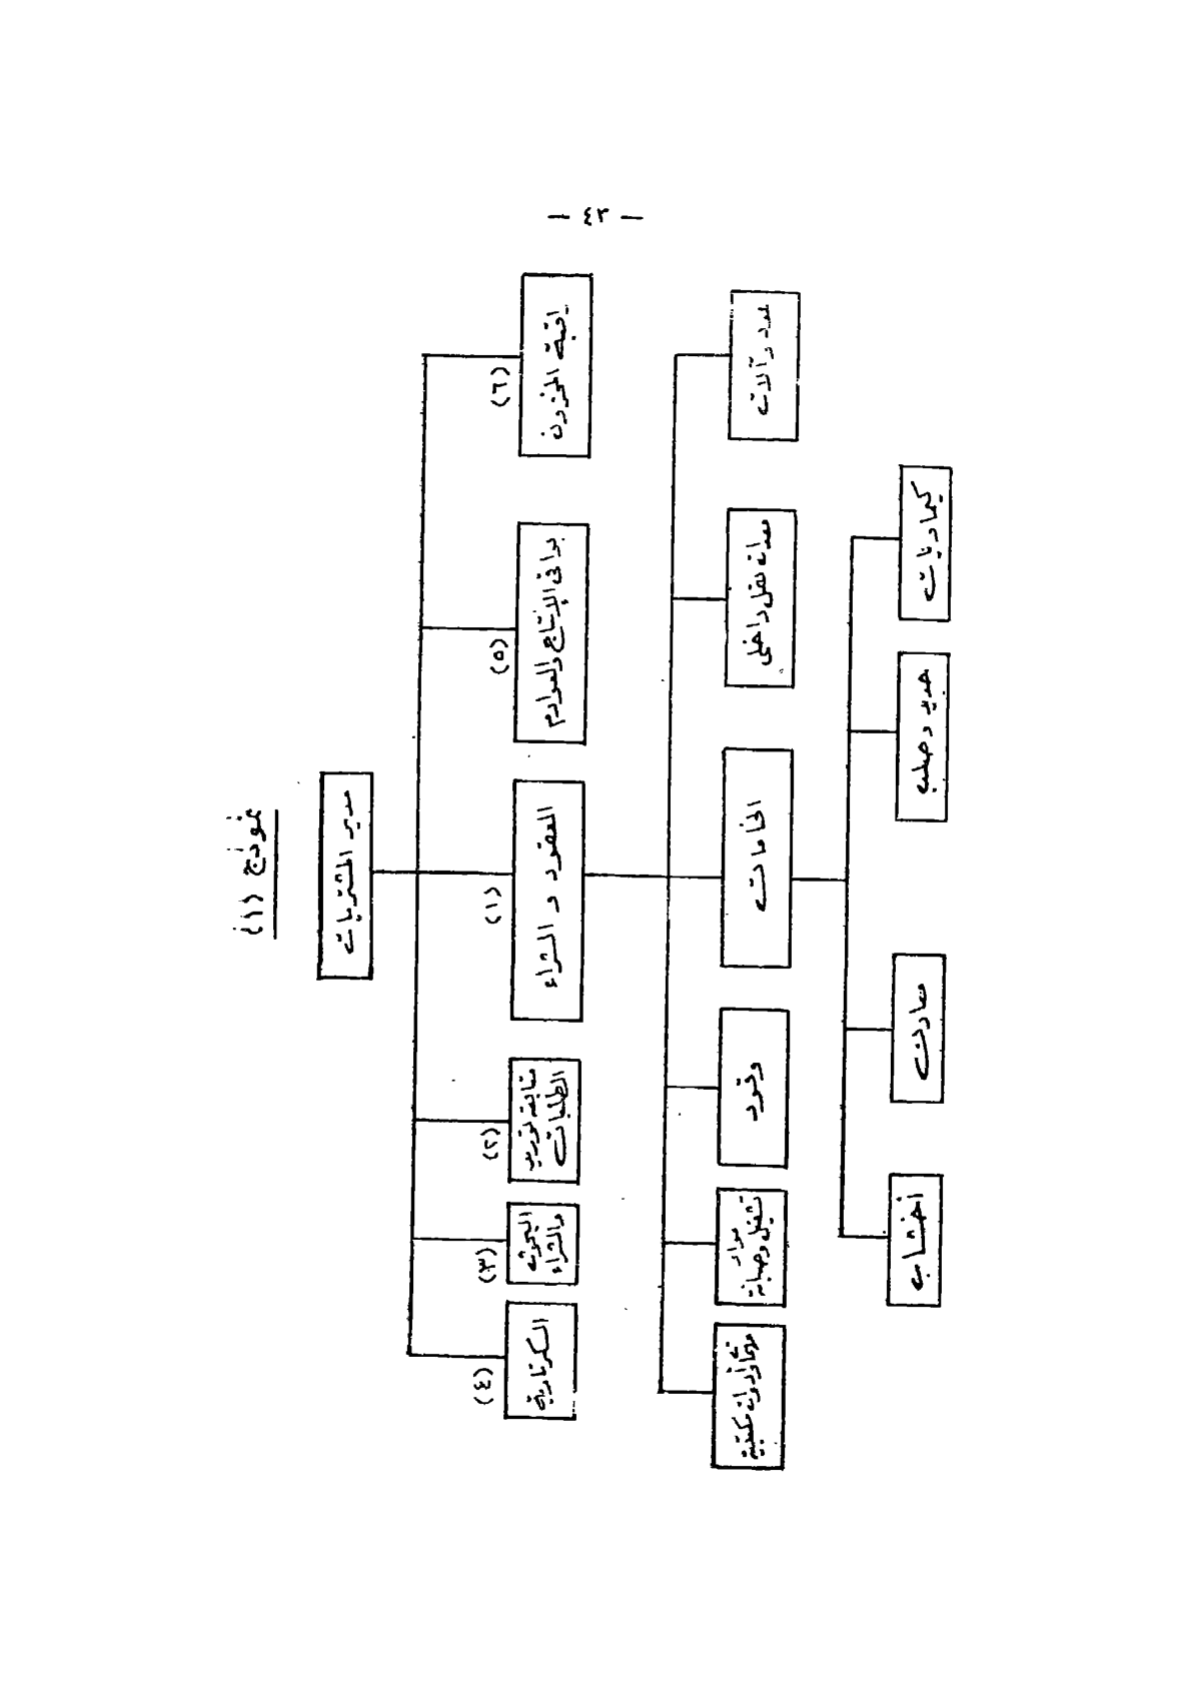 — ٤٣ —
نموذج (١)
مدير المشتريات
(٦)
المخزون
(٥)
بواقى الإنتاج والعوادم
(١)
العقود و الشراء
(٢)
متابعة توريد
الطلبات
(٣)
البحوث
والشراء
(٤)
السكرتارية
عدد وآلات
معدات نقل داخلى
الخامات
وقود
مواد
تشغيل وصيانة
مكتبية
كيماويات
حديد وصلب
معادن
أخشاب